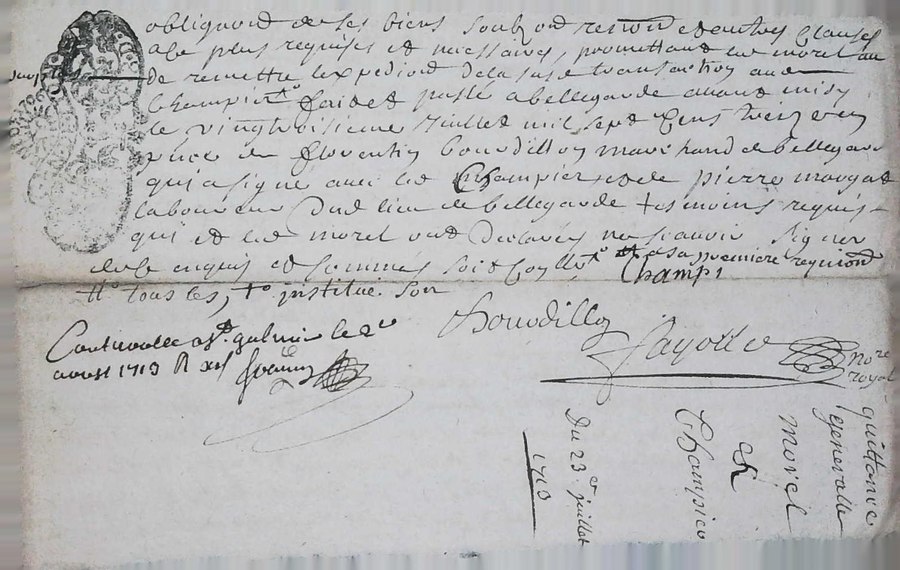 obligaõn de ses biens soubz oõn renoõn et autres clauses
a ce plus requises et necessaires, promettant led morel au
de remettre lexpedition de la susd transaction aud
Champier tº faict et passé a bellegarde avant midy
le vingtroisieme juillet mil sept Cens treize en
pñce de florentin bourdillon marchand de bellegarde
qui a signé avec led Champier, et de pierre
laboureur dud lieu de bellegarde tesmoins requis
qui et led morel ont declarés ne scavoir signer
de ce enquis et sommés soit Coñllé tº a sa premiere requisoñ
ttº tous les, tº institué son
Champi
Bourdillon
Controolle a St. galmier le 2e
aoust 1713 R xii s
Jayotte
nore
royal
quittance
generalle
morel
et
Champier
Du 23er juillet
1713